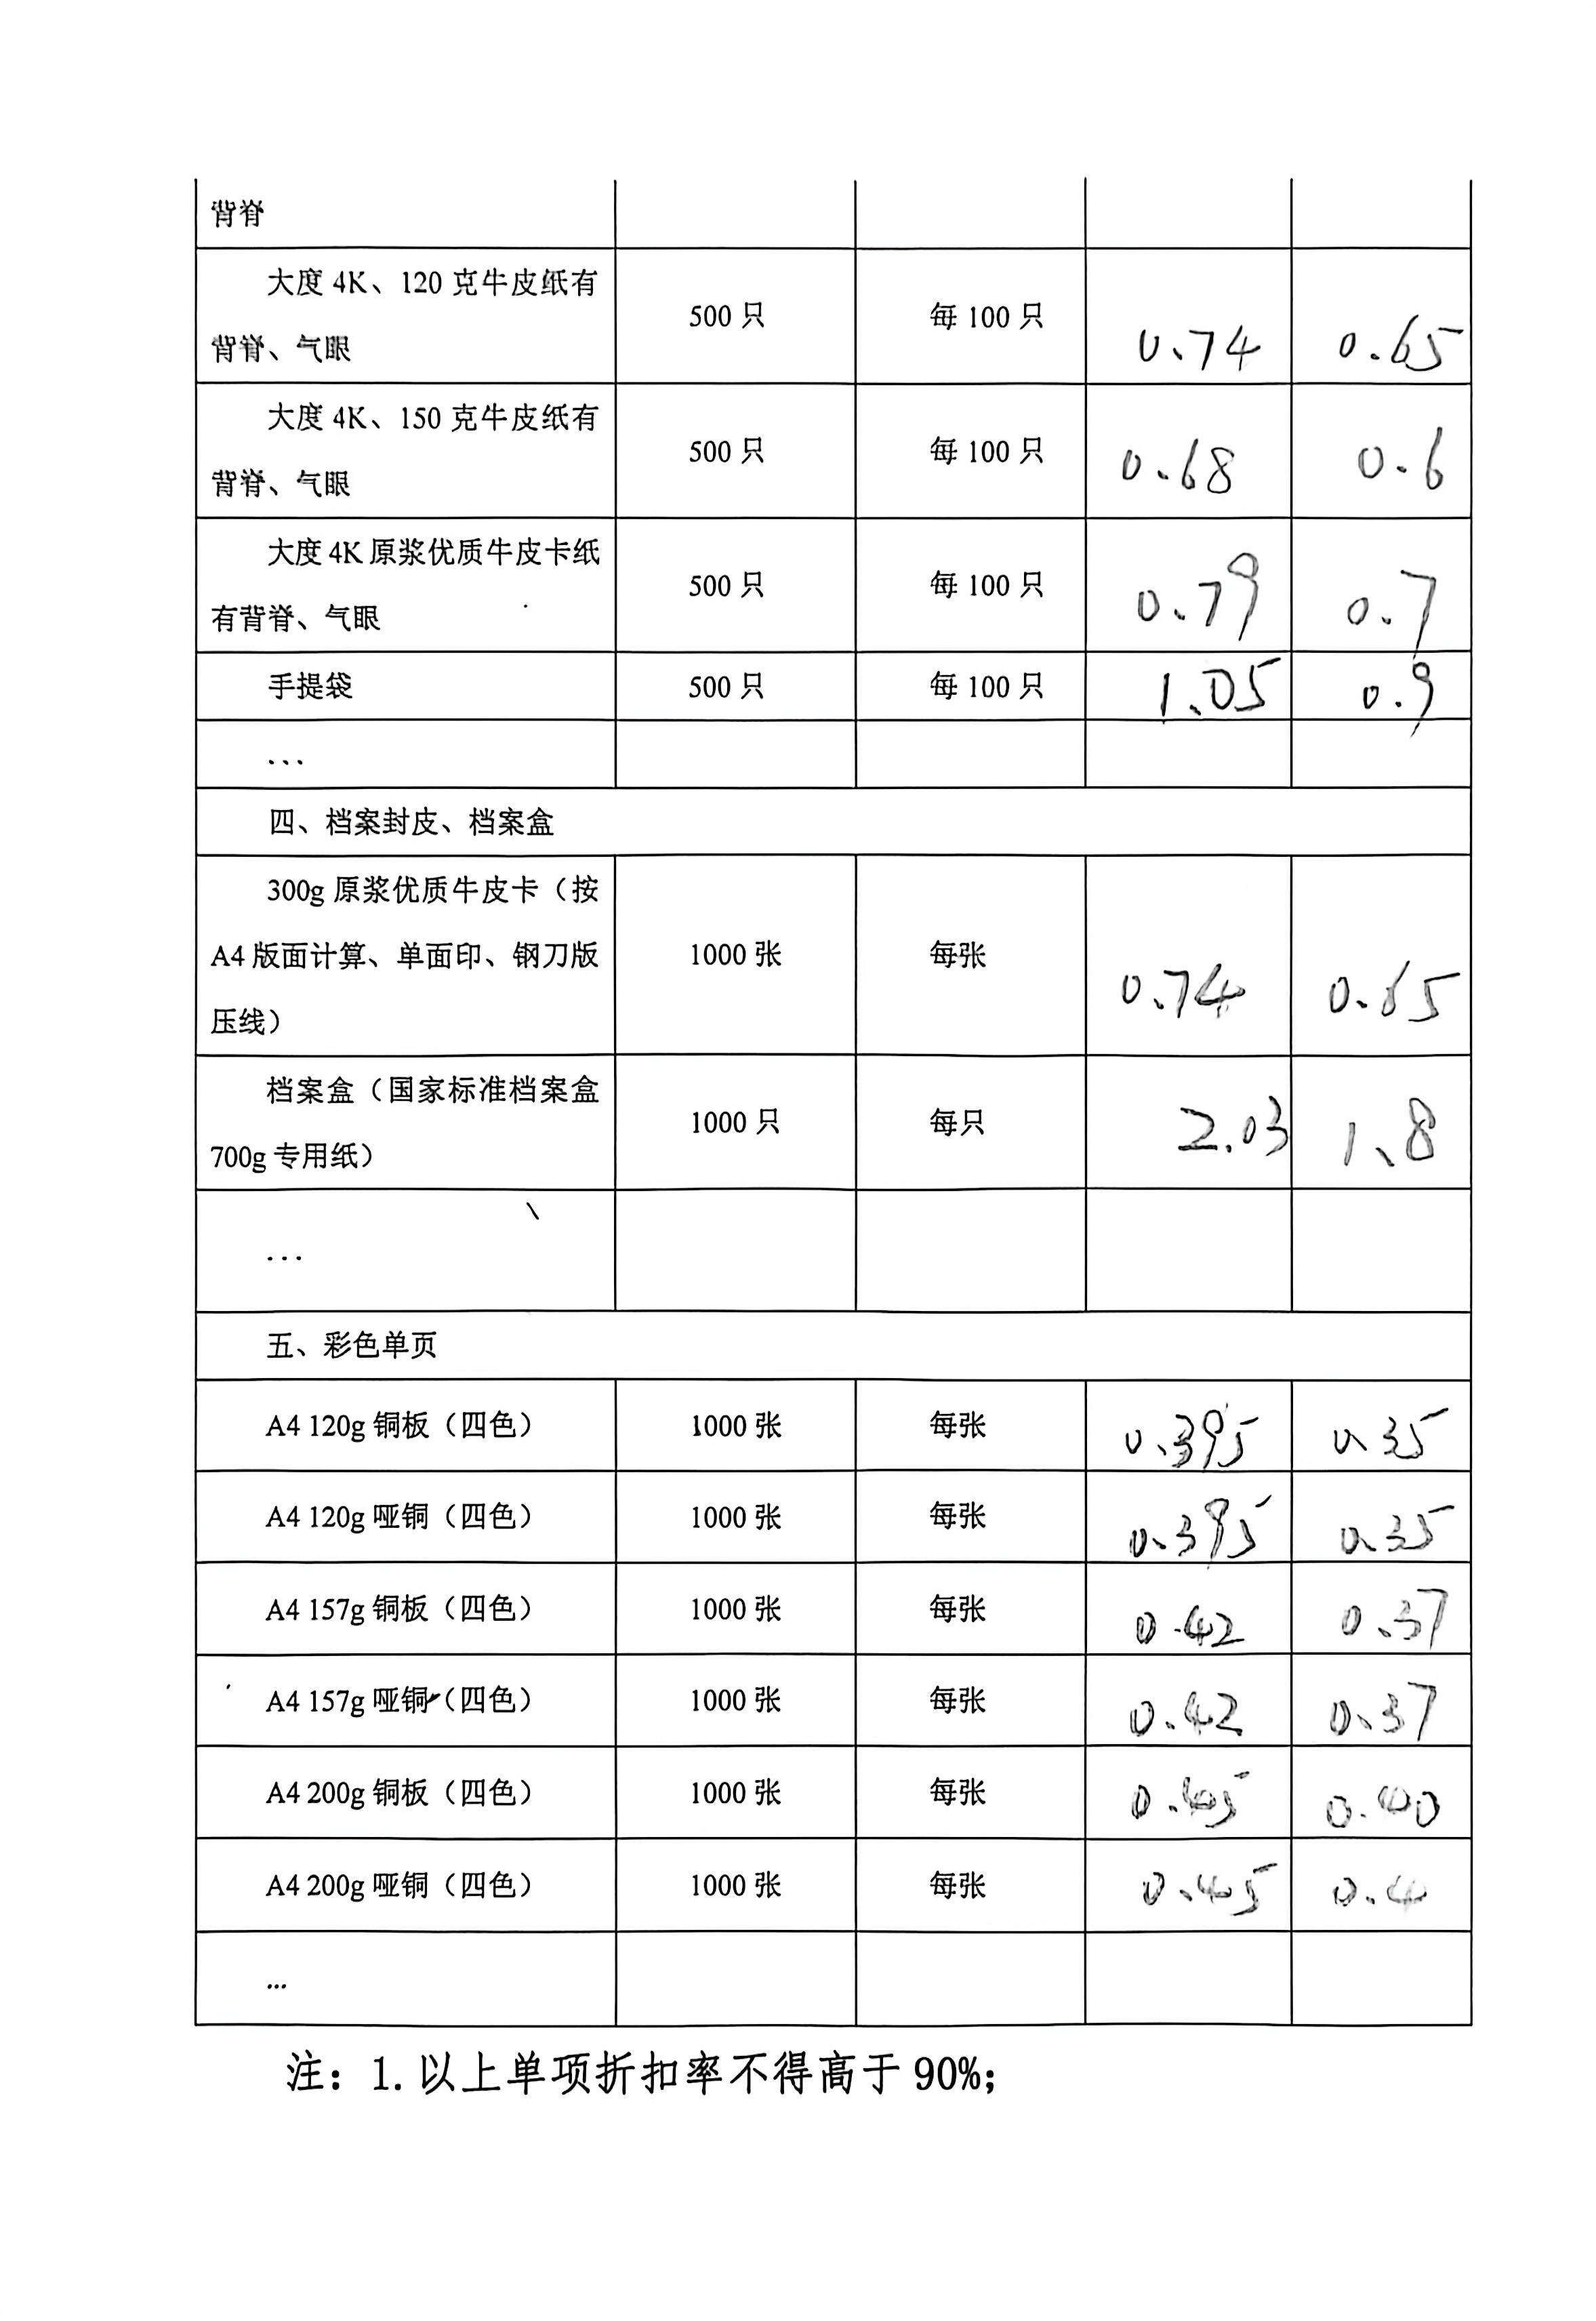 背脊
大度 4K、120 克牛皮纸有
背脊、气眼
500 只
每 100 只
0.74
0.65
大度 4K、150 克牛皮纸有
背脊、气眼
500 只
每 100 只
0.68
0.6
大度 4K 原浆优质牛皮卡纸
有背脊、气眼
500 只
每 100 只
0.79
0.7
手提袋
500 只
每 100 只
1.05
0.9
...
四、档案封皮、档案盒
300g 原浆优质牛皮卡（按
A4 版面计算、单面印、钢刀版
压线）
1000 张
每张
0.74
0.65
档案盒（国家标准档案盒
700g 专用纸）
1000 只
每只
2.03
1.8
...
五、彩色单页
A4 120g 铜板（四色）
1000 张
每张
0.395
0.35
A4 120g 哑铜（四色）
1000 张
每张
0.395
0.35
A4 157g 铜板（四色）
1000 张
每张
0.42
0.37
A4 157g 哑铜（四色）
1000 张
每张
0.42
0.37
A4 200g 铜板（四色）
1000 张
每张
0.45
0.40
A4 200g 哑铜（四色）
1000 张
每张
0.45
0.4
...
注：1. 以上单项折扣率不得高于 90%；